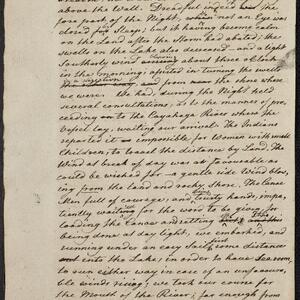 above the Wall. Dreadful indeed was the
fore part of the Night, when not an Eye was
closed for Sleep; but it having been calm
on the Land after the Storm had abated; the
swells on the Lake also decreased - and a light
Southerly wind about three o'Clock
in the morning assisted in turning the swells
in a direction from the shore where
we were. We had, during the Night held
several consultations, as to the manner of pro,
ceeding on to the Cayahaga River where the
Vessel lay, waiting our arrival. The Indians
reported it as impossible, for Women with small
Children, to travel the distance by Land. The
Wind at break of day was as favourable as
could be wished for - a gentle side Wind blow,
ing from the land and rocky shore. The Canoe
Men full of courage, and trusty hands, impa,
tiently waiting for the word to be given for
loading the Canoes and setting The
being done at day light, we embarked, and
running under an easy Sail first some distance
into the Lake; in order to have Sea room,
to use either way in case of an unfavoura,
ble winds, we took our course for
the Mouth of the River; far enough from